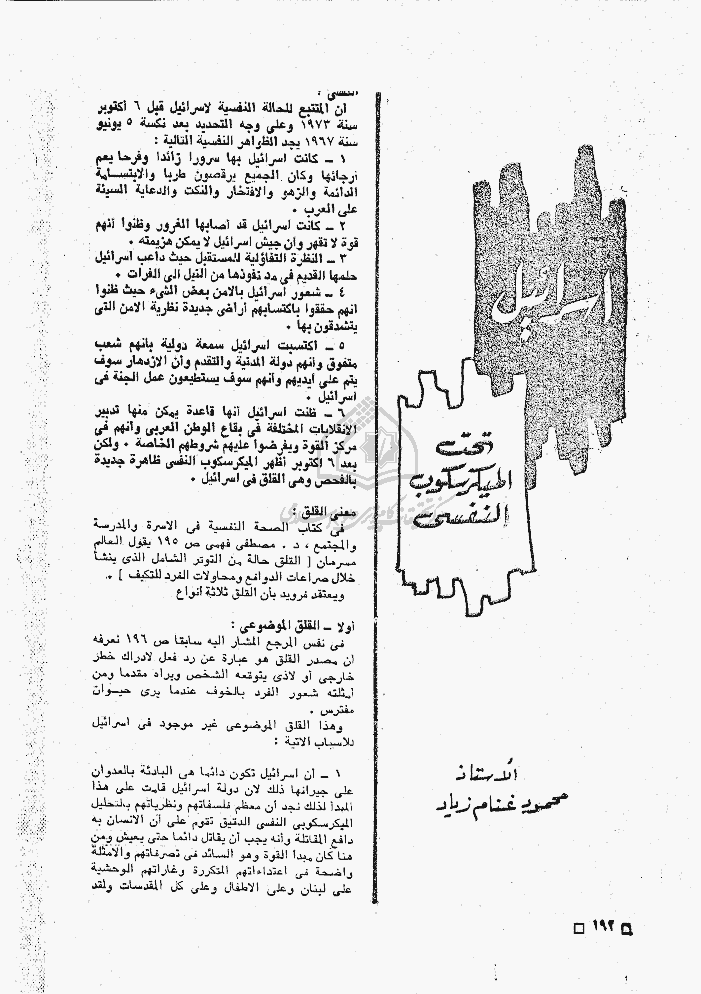 اسرائيل
تحت
الميكرسكوب
النفسى
الأستاذ
محمود غنام زياد
النفسى :
ان المتتبع للحالة النفسية لاسرائيل قبل ٦ أكتوبر
سنة ١٩٧٣ وعلى وجه التحديد بعد نكسة ٥ يونيو
سنة ١٩٦٧ يجد الظواهر النفسية التالية :
١ ـ كانت اسرائيل بها سرورا زائدا وفرحا يعم
أرجائها وكان الجميع يرقصون طربا والابتسامة
الدائمة والزهو والافتخار والنكت والدعاية السيئة
على العرب .
٢ ـ كانت اسرائيل قد أصابها الغرور وظنوا أنهم
قوة لا تقهر وان جيش اسرائيل لا يمكن هزيمته .
٣ ـ النظرة التفاؤلية للمستقبل حيث داعب اسرائيل
حلمها القديم فى مد نفوذها من النيل الى الفرات .
٤ ـ شعور اسرائيل بالامن بعض الشىء حيث ظنوا
انهم حققوا باكتسابهم أراضى جديدة نظرية الامن التى
يتشدقون بها .
٥ ـ اكتسبت اسرائيل سمعة دولية بأنهم شعب
متفوق وأنهم دولة المدنية والتقدم وأن الازدهار سوف
يتم على أيديهم وأنهم سوف يستطيعون عمل الجنة فى
اسرائيل .
٦ ـ ظنت اسرائيل أنها قاعدة يمكن منها تدبير
الانقلابات المختلفة فى بقاع الوطن العربى وأنهم فى
مركز القوة ويفرضوا عليهم شروطهم الخاصة . ولكن
بعد ٦ أكتوبر أظهر الميكرسكوب النفسى ظاهرة جديدة
بالفحص وهى القلق فى اسرائيل .
معنى القلق :
فى كتاب الصحة النفسية فى الاسرة والمدرسة
والمجتمع ، د . مصطفى فهمى ص ١٩٥ يقول العالم
مسرمان [ القلق حالة من التوتر الشامل الذى ينشأ
خلال صراعات الدوافع ومحاولات الفرد للتكيف ] .
ويعتقد فرويد بأن القلق ثلاثة أنواع
أولا ـ القلق الموضوعى :
فى نفس المرجع المشار اليه سابقا ص ١٩٦ نعرفه
أن مصدر القلق هو عبارة عن رد فعل لادراك خطر
خارجى أو لاذى يتوقعه الشخص ويراه مقدما ومن
أمثلته شعور الفرد بالخوف عندما يرى حيوان
مفترس .
وهذا القلق الموضوعى غير موجود فى اسرائيل
للاسباب الاتية :
١ ـ أن اسرائيل تكون دائما هى البادئة بالعدوان
على جيرانها ذلك لان دولة اسرائيل قامت على هذا
المبدأ لذلك نجد أن معظم فلسفاتهم ونظرياتهم بالتحليل
الميكرسكوبى النفسى الدقيق تقوم على أن الانسان به
دافع المقاتلة وأنه يجب أن يقاتل دائما حتى يعيش ومن
هنا كان مبدأ القوة وهو السائد فى تصرفاتهم والامثلة
واضحة فى اعتداءاتهم المتكررة وغاراتهم الوحشية
على لبنان وعلى الاطفال وعلى كل المقدسات ولقد
١٩٢